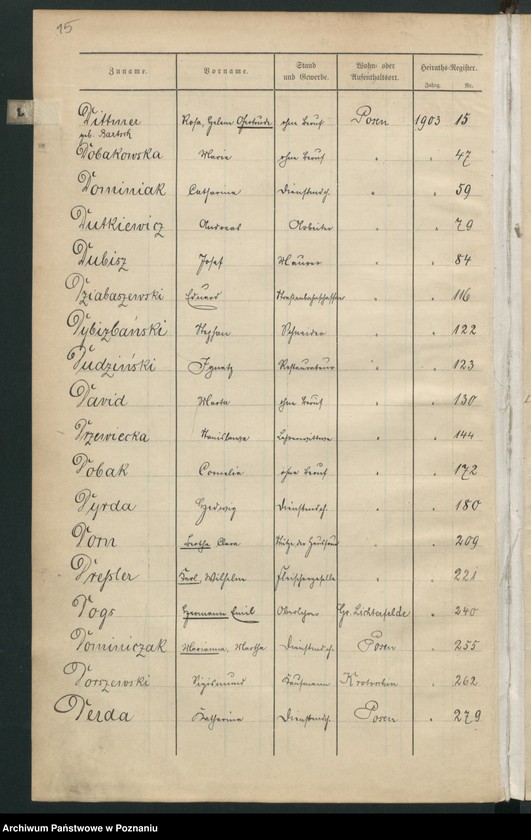 15
Zuname. Vorname. Stand und Gewerbe. Wohn- oder Aufenthaltsort. Heiraths-Register.
Jahrg. Nr.
Dittmer Rosa, Helene Gertrude ohne Beruf Posen 1903 15
geb. Bartsch
Dobakowska Marie ohne Beruf " " 47
Dominiak Catharina Dienstmdch. " " 59
Dutkiewicz Andreas Arbeiter " " 79
Dubisz Josef Maurer " " 84
Dziabaszewski Eduard Straßenbahnschaffner " " 116
Dybizbański Stephan Schneider " " 122
Dudziński Ignatz Restaurateur " " 123
David Marta ohne Beruf " " 130
Drzewiecka Stanislawa Lehrerwittwe " " 144
Dobak Cornelia ohne Beruf " " 172
Dyrda Hedwig Dienstmdch. " " 180
Dorn Bertha Clara Stütze der Hausfrau " " 209
Dreßler Karl, Wilhelm Fleischergeselle " " 221
Dogs Hermann Emil Oberlehrer Gr. Lichterfelde " 240
Dominiczak Marianna, Martha Dienstmdch. Posen " 255
Dorszewski Sigismund Kaufmann Krotoschin " 262
Derda Katharina Dienstmdch. Posen " 279
Archiwum Państwowe w Poznaniu